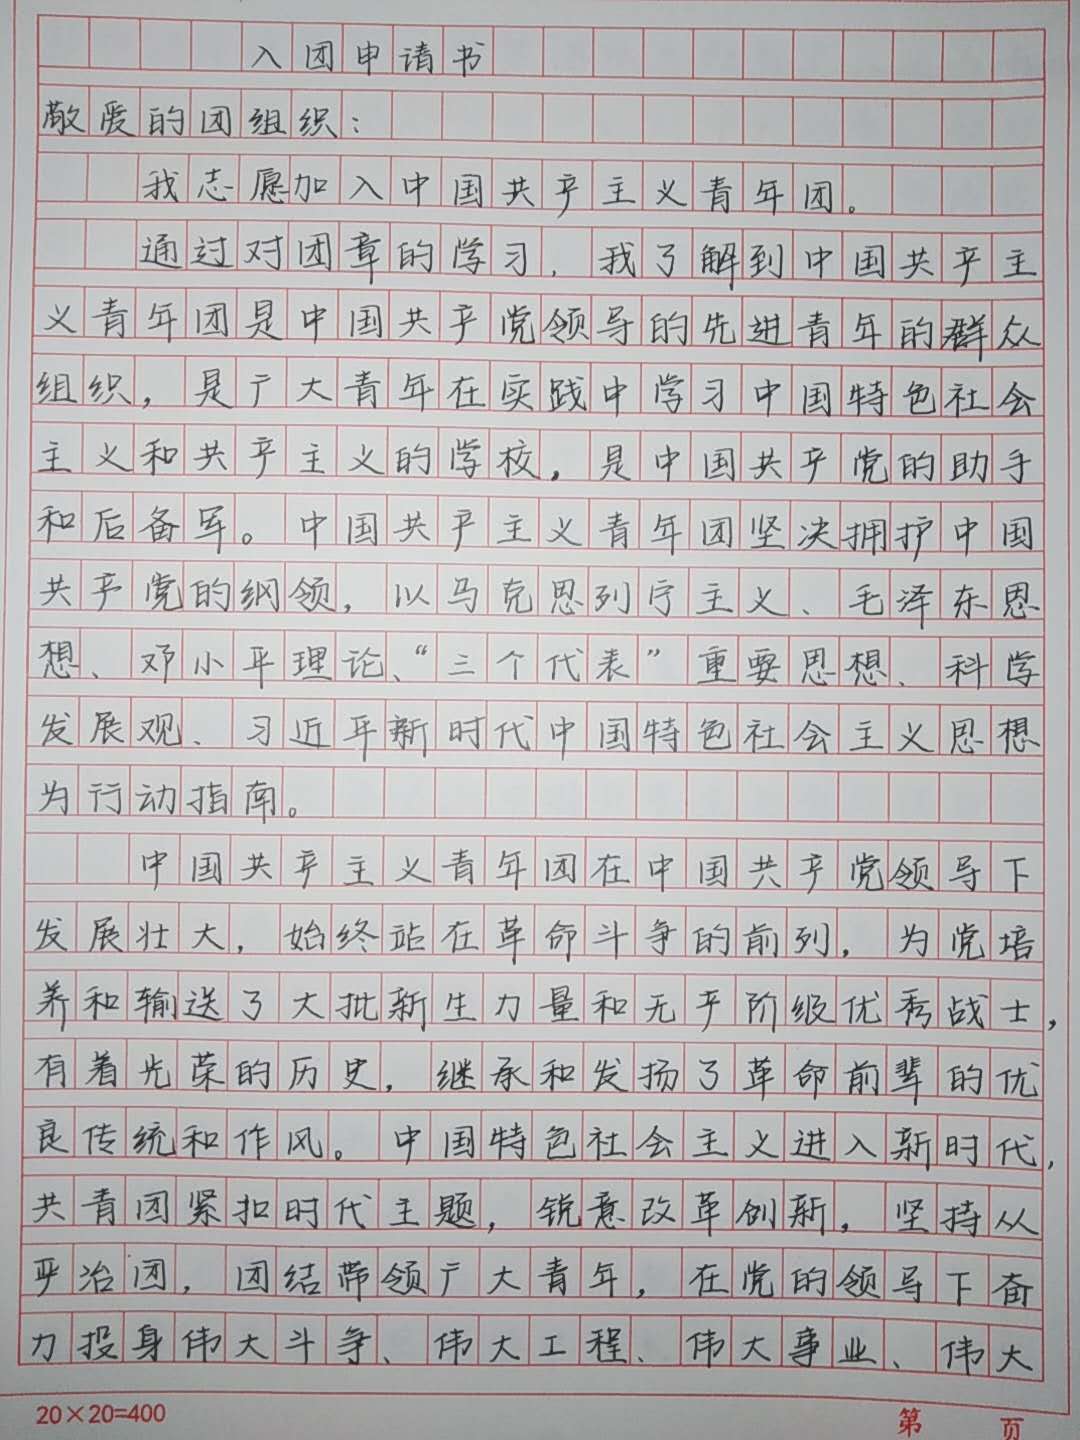 入团申请书
敬爱的团组织：
我志愿加入中国共产主义青年团。
通过对团章的学习，我了解到中国共产主
义青年团是中国共产党领导的先进青年的群众
组织，是广大青年在实践中学习中国特色社会
主义和共产主义的学校，是中国共产党的助手
和后备军。中国共产主义青年团坚决拥护中国
共产党的纲领，以马克思列宁主义、毛泽东思
想、邓小平理论、“三个代表”重要思想、科学
发展观、习近平新时代中国特色社会主义思想
为行动指南。
中国共产主义青年团在中国共产党领导下
发展壮大，始终站在革命斗争的前列，为党培
养和输送了大批新生力量和无产阶级优秀战士，
有着光荣的历史，继承和发扬了革命前辈的优
良传统和作风。中国特色社会主义进入新时代，
共青团紧扣时代主题，锐意改革创新，坚持从
严治团，团结带领广大青年，在党的领导下奋
力投身伟大斗争、伟大工程、伟大事业、伟大
20×20=400 第 页